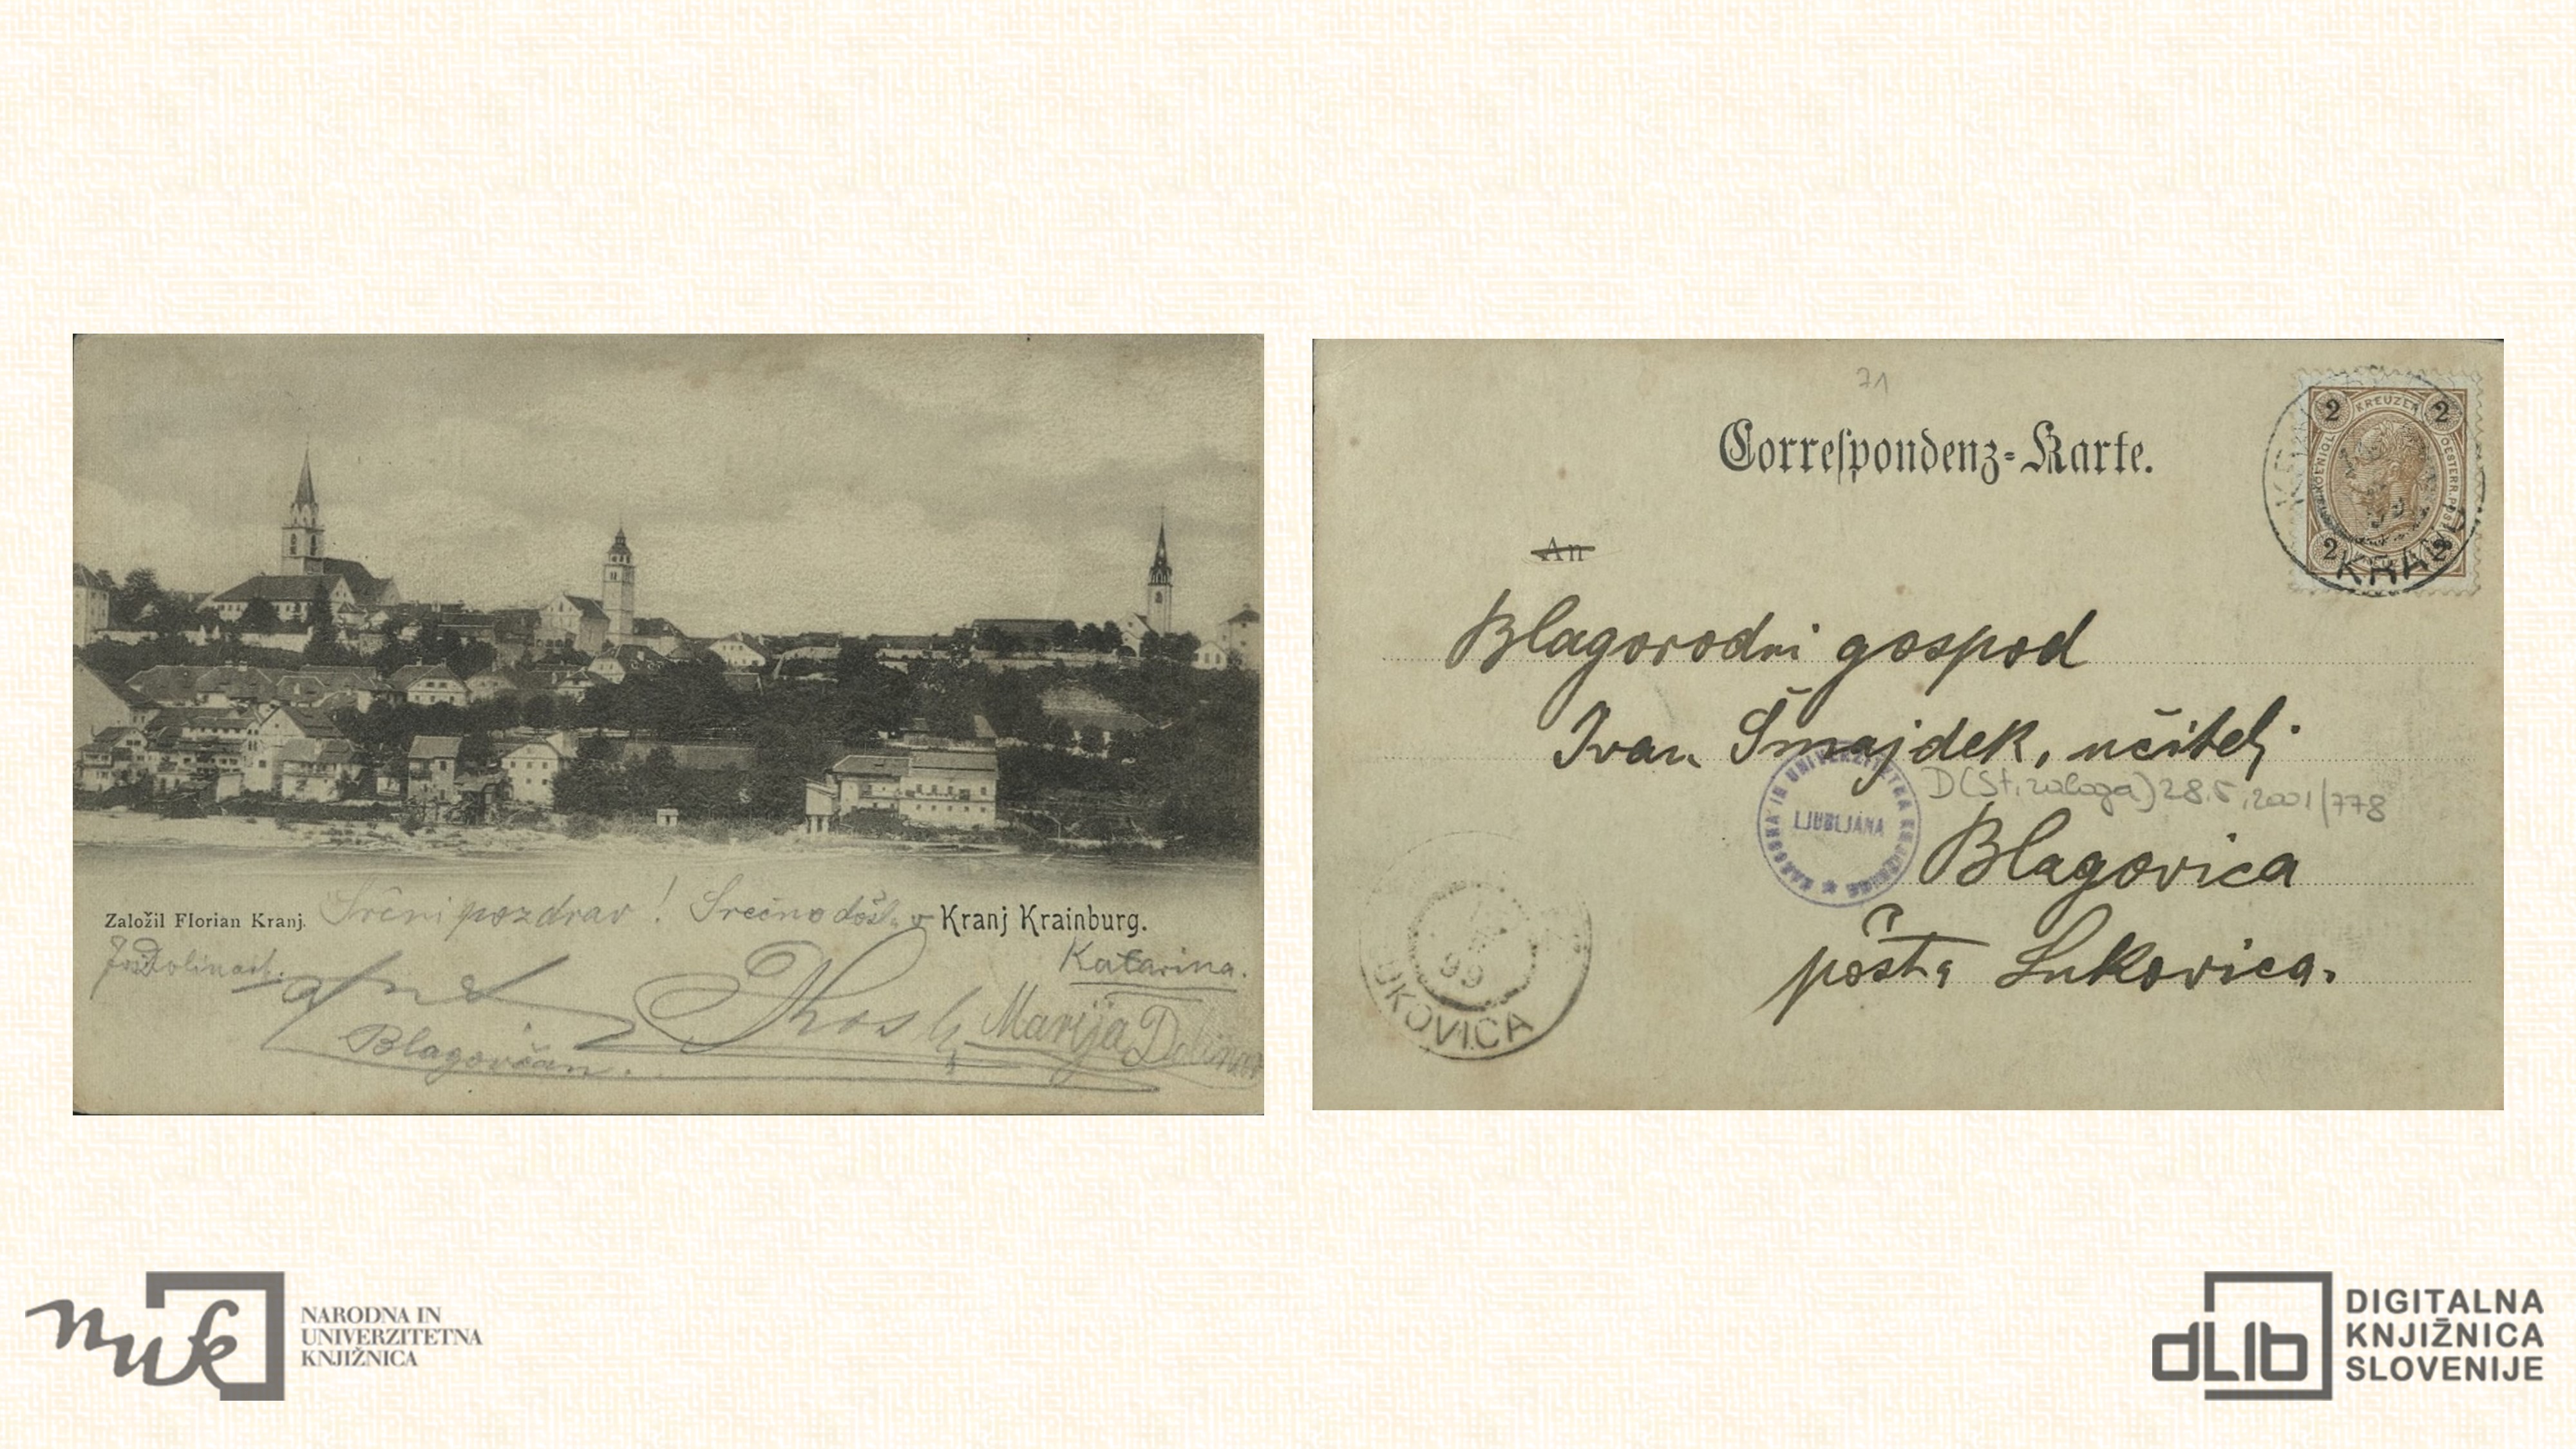 Založil Florian Kranj.
Srčni pozdrav! Srečno došli v
Kranj Krainburg.
Dolinar
Katarina.
Marija Dolinar
Blagovčan.
71
Correspondenz-Karte.
An
2 KREUZER 2
2 2
KRAINBURG
KRANJ
Blagorodni gospod
Ivan Šmajdek, učitelj
NARODNA IN UNIVERZITETNA KNJIŽNICA
LJUBLJANA
D(St. zaloga) 28.5.2001/778
Blagovica
pošta Lukovica.
99
LUKOVICA
nuk
NARODNA IN
UNIVERZITETNA
KNJIŽNICA
dLib
DIGITALNA
KNJIŽNICA
SLOVENIJE